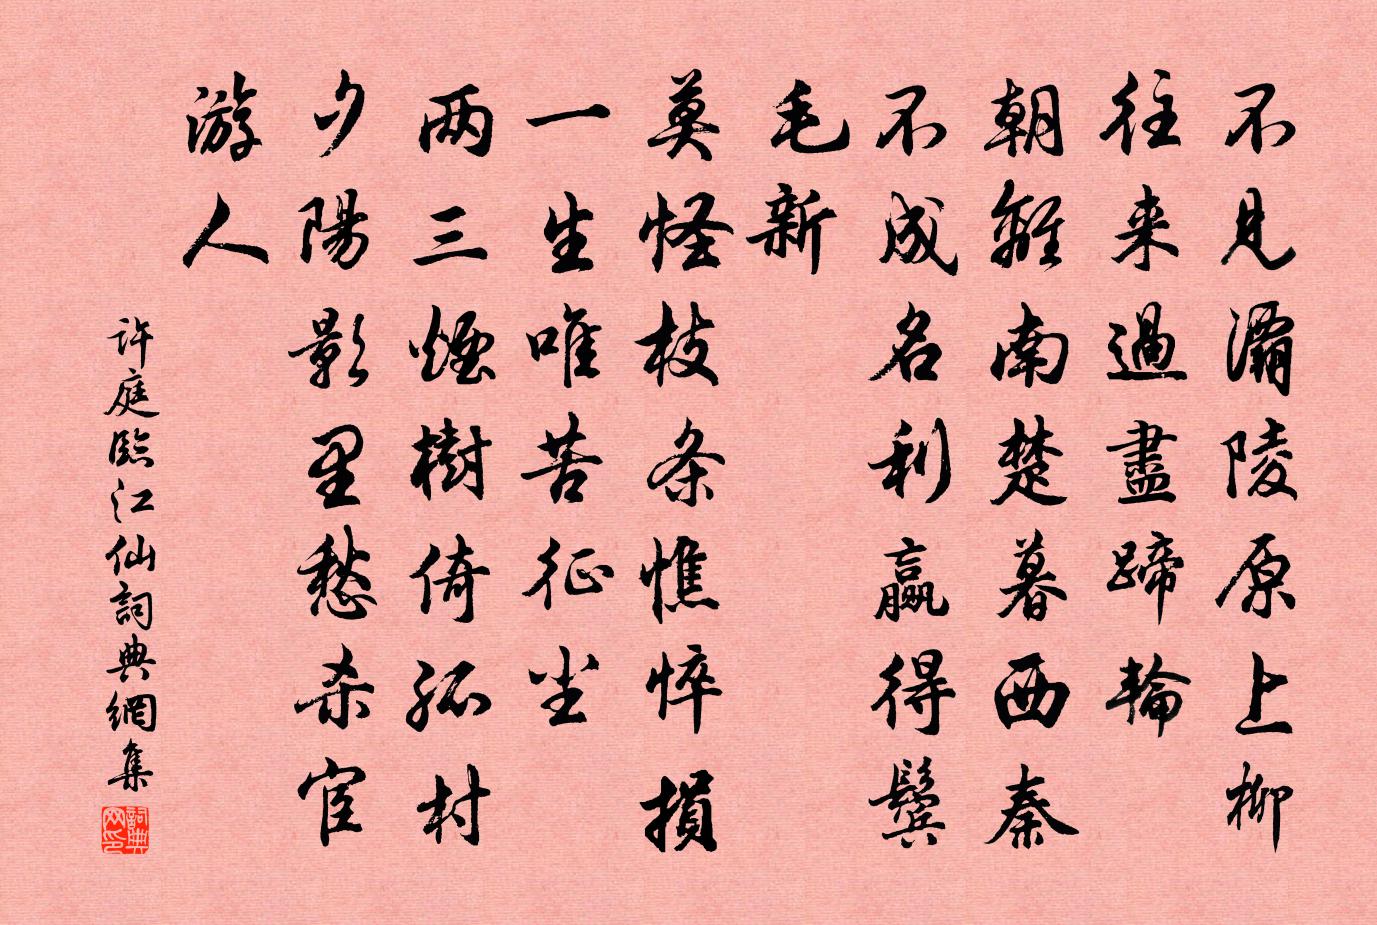 不見灞陵原上柳
往来過盡蹄輪
朝離南楚暮西秦
不成名利贏得鬢
毛新
莫怪枝条憔悴損
一生唯苦征尘
两三煙樹倚孤村
夕陽影里愁杀宦
游人
許庭臨江仙詞典網集
詞典网印